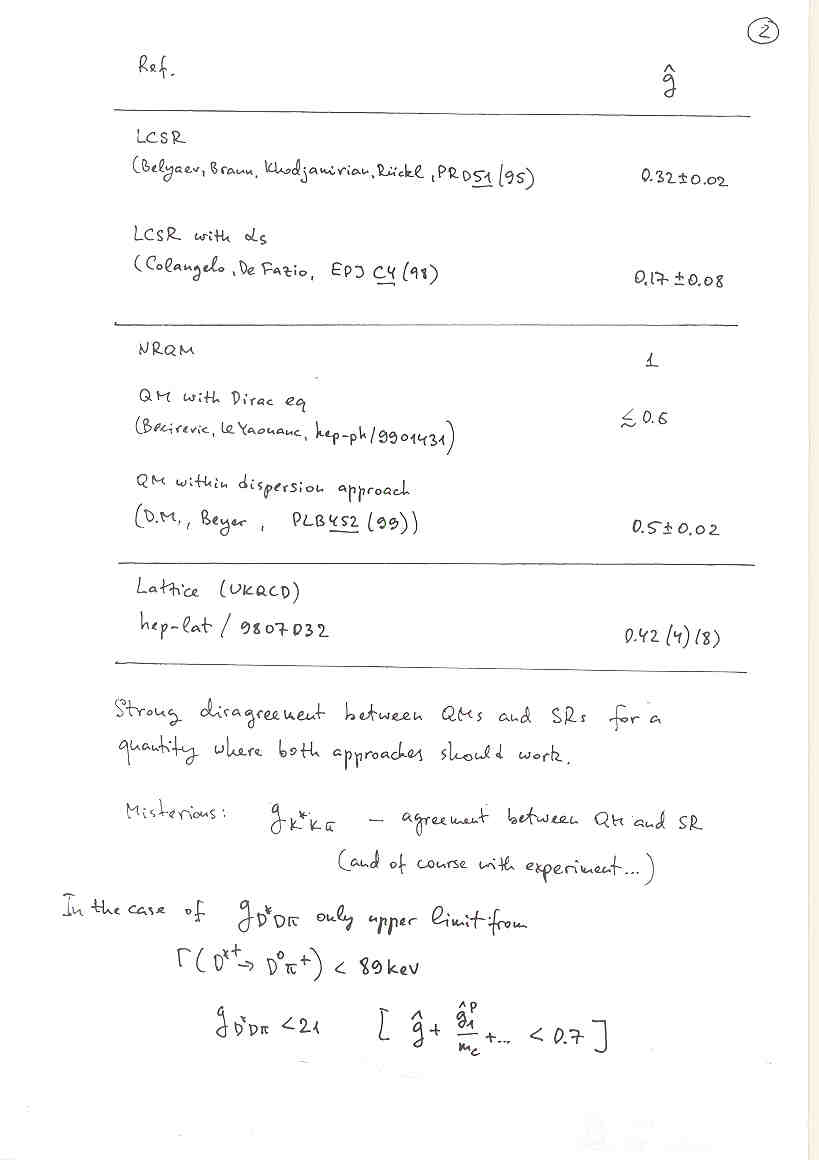 2
Ref. ĝ
LCSR
(Belyaev, Braun, Khodjamirian, Rückl, PRD51 (95) 0.32±0.02
LCSR with αs
(Colangelo, De Fazio, EPJ C4 (98) 0.17±0.08
NRQM 1
QM with Dirac eq
(Becirevic, Le Yaouanc, hep-ph/9901431) ≲ 0.6
QM within dispersion approach
(D.M., Beyer, PLB452 (99)) 0.5±0.02
Lattice (UKQCD)
hep-lat / 9807032 0.42 (4)(8)
Strong disagreement between QMs and SRs for a
quantity where both approaches should work.
Misterious: g_{K*Kπ} — agreement between QM and SR
(and of course with experiment...)
In the case of g_{D*Dπ} only upper limit from
Γ(D*⁺→ D⁰π⁺) < 89 keV
g_{D*Dπ} < 21 [ ĝ + ĝ₁ᵖ/m_c +... < 0.7 ]